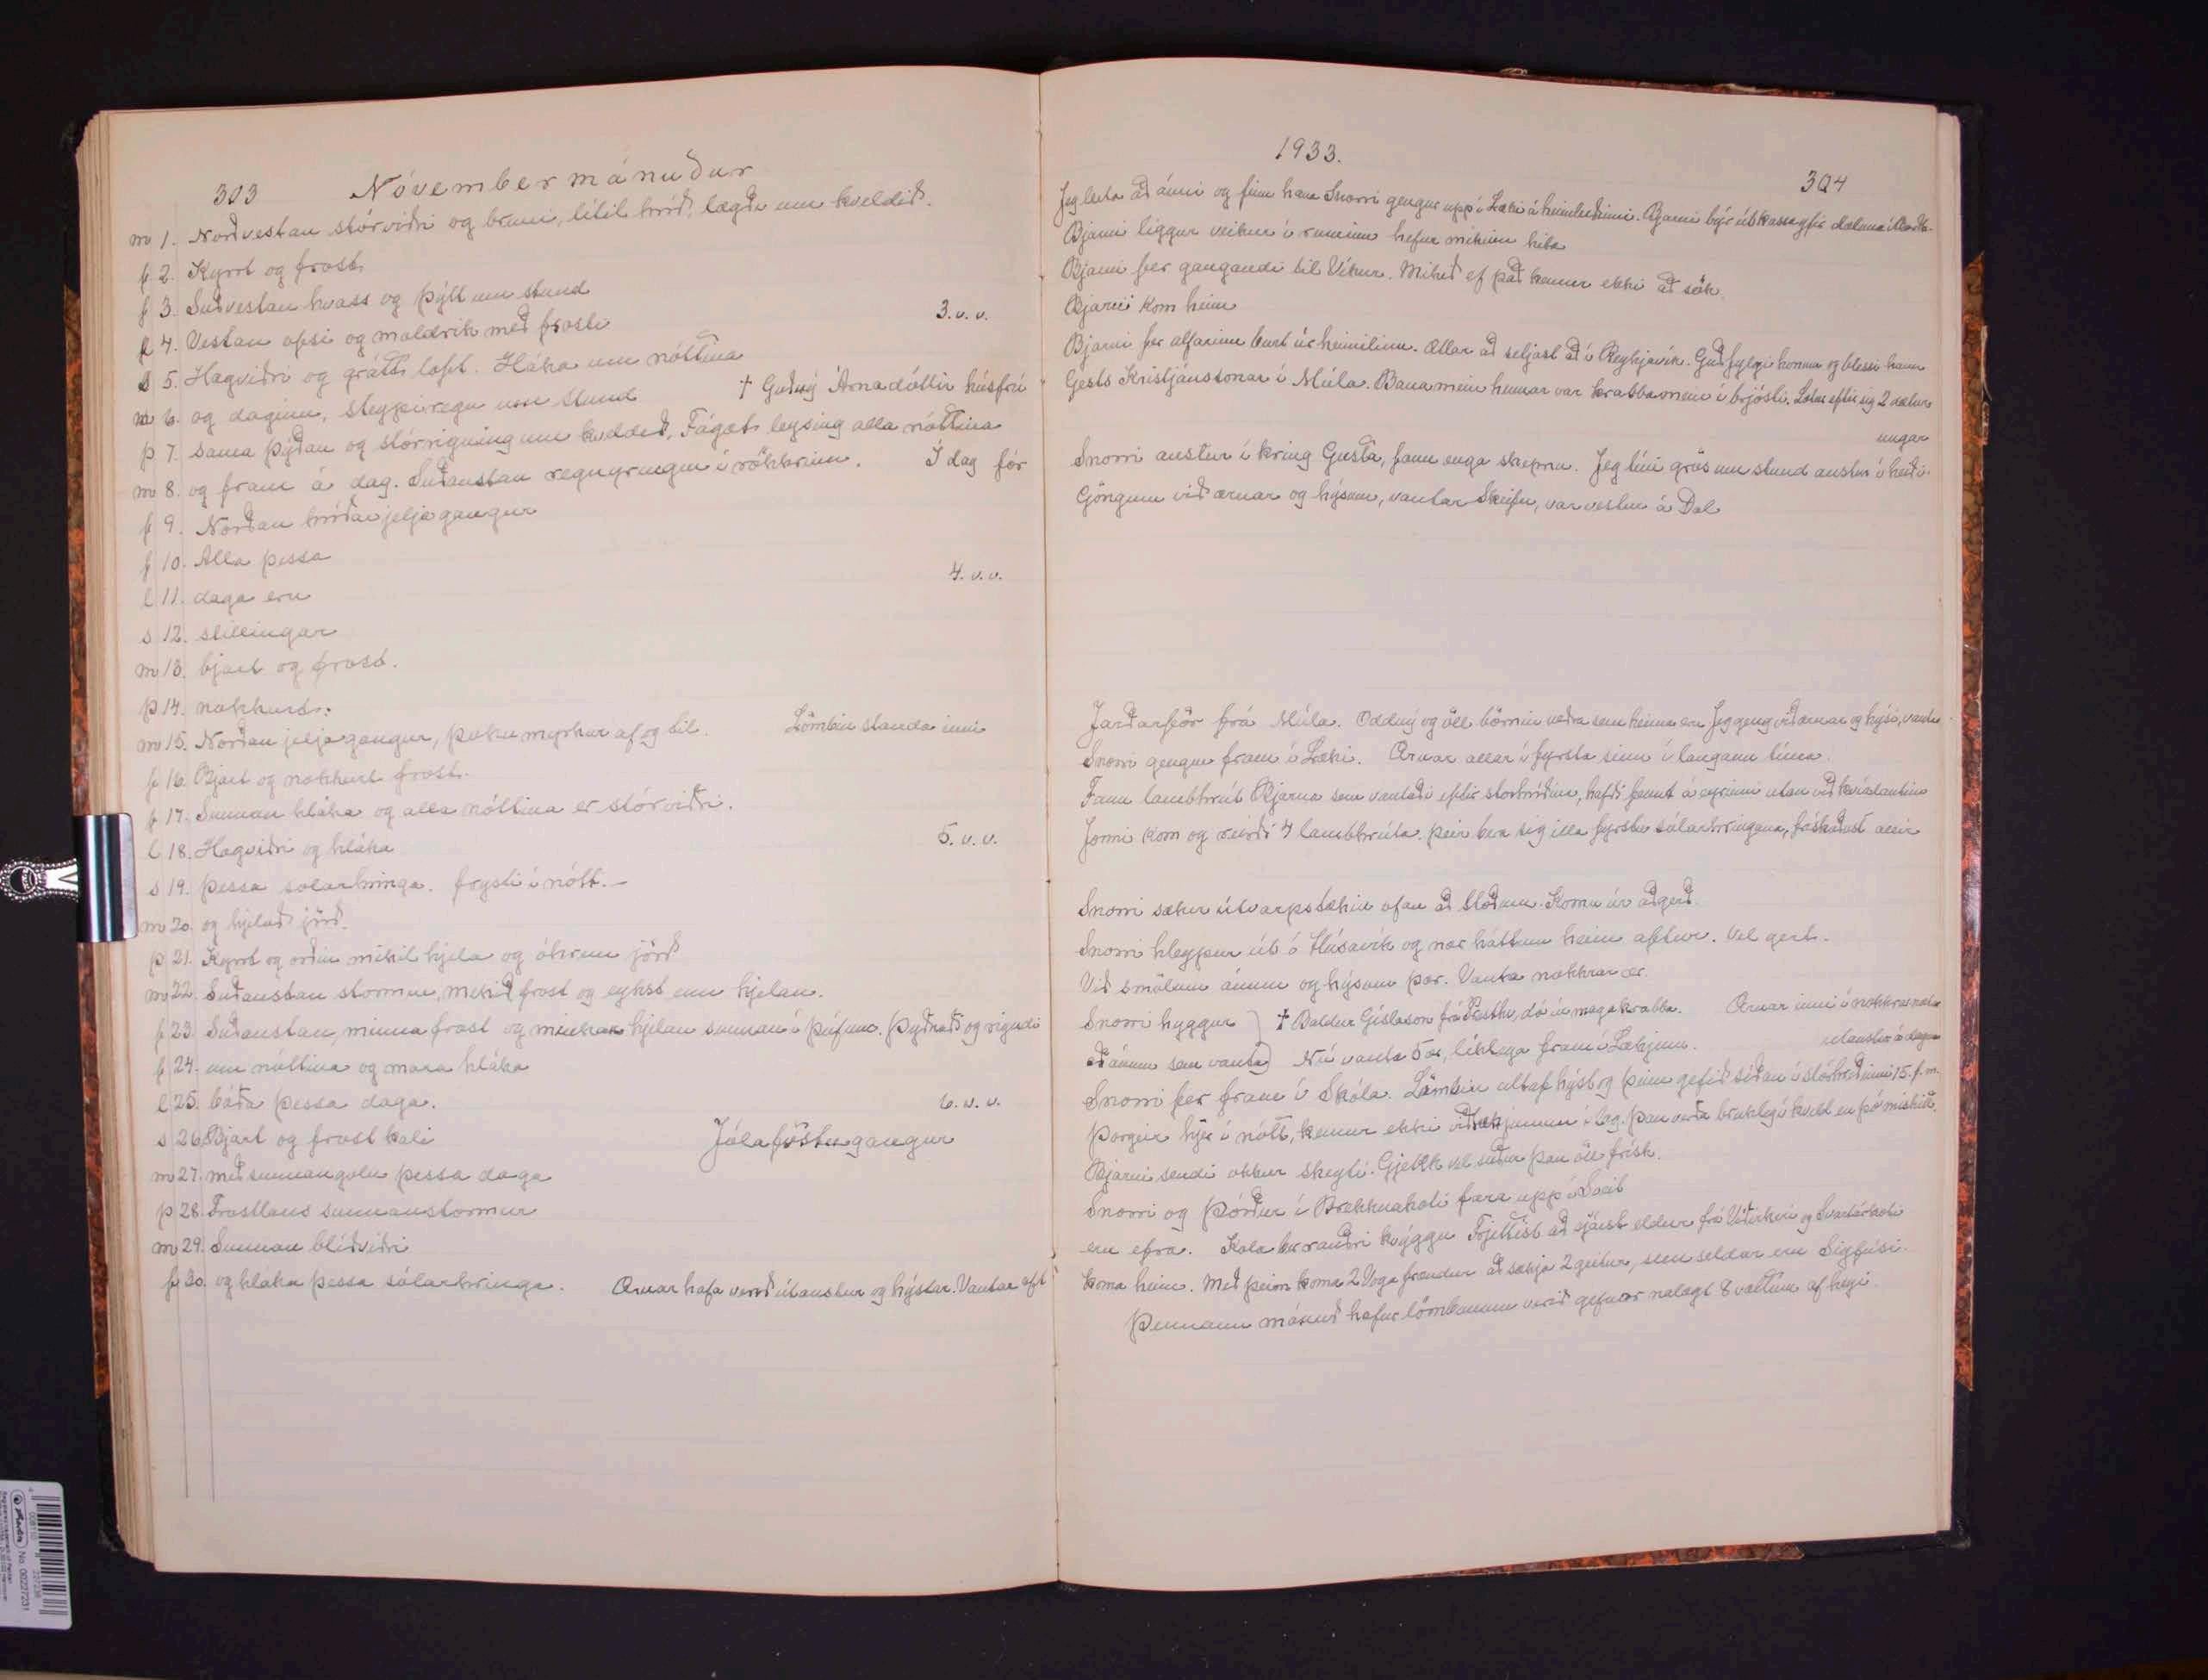 303 Nóvembermánuður
m 1. Norðvestan stórviðri og bruni, lítil hríð, lægði um kveldið.
f 2. Kyrrt og frost
f 3. Suðvestan hvass og þýtt um stund
l 4. Vestan ofsi og moldrik með frosti 3. v. v.
s 5. Hagviðri og grátt loft. Hláka um nóttina
m 6. og daginn, steypiregn um stund † Guðný Árnadóttir húsfrú
þ 7. sama þýðan og stórrigning um kveldið, Fágæt leysing alla nóttina
m 8. og fram á dag. Suðaustan regnyringur í rökkrinu. Í dag fór
f 9. Norðan hríðarjeljagangur
f 10. Alla þessa
l 11. daga eru 4. v. v.
s 12. stillingar
m 13. bjart og frost.
þ 14. nokkurt.
m 15. Norðan jeljagangur, þoku myrkur af og til. Lömbin standa inni
f 16. Bjart og nokkurt frost.
f 17. Sunnan hláka og alla nóttina er stórviðri.
l 18. Hagviðri og hláka 5. v. v.
s 19. þessa solarhringa. frysti í nótt.-
m 20. og hjelað jörð.
þ 21. Kyrrt og orðin mikil hjela og óhrein jörð
m 22. Suðaustan stormur, mikið frost og eykst um hjelan.
f 23. Suðaustan, minna frost og minkar hjelan sunnan í þúfum. Þyðnaði og rigndi
f 24. um nóttina og mara hláka
l 25. báða þessa daga. 6. v. v.
s 26. Bjart og frost kali Jólaföstugangur
m 27. með sunnangolu þessa daga
þ 28. Frostlaus sunnanstormur
m 29. Sunnan blíðviðri
f 30. og hláka þessa sólarhringa. Ærnar hafa verið útaustur og hýstar. Vantar
1933.
304
Jeg leita að ánni og finn hana Snorri gengur upp í Læki á heimleiðinni. Bjarni býr út kassa yfir
Bjarni liggur veikur í rúminu hefur mikinn hita
Bjarni fer gangandi til Víkur. Mikið ef það kemur ekki að sök
Bjarni kom heim
Bjarni fer alfarinn burt úr heimilinu. Ætlar að setjast að í Reykjavík. Guð fylgi honum og blessi hann
Gests Kristjánssonar í Múla. Banamein hennar var krabbamein í brjósti. Lætur eftir sig 2 dætur
ungar
Snorri austur í kring Gusta, fann enga skepnu. Jeg tíni grös um stund austur í heiði.
Göngum við ærnar og hýsum, vantar Skeifu, var vestur á Dal
Jarðarför frá Múla. Oddný og öll börnin vera sem heima eru Jeg geng við ærnar og hýsi, vantar
Snorri gengur fram í Læki. Ærnar allar í fyrsta sinn í langann tíma.
Fann lambhrút Bjarna sem vantaði eftir stórhríðina, hafði fennt á eyrinni utan við
Jonni kom og 4 lambhrúta. þeir bera sig illa fyrstu sólarhringana, allir
Snorri sækir útvarpstækin ofan að Stöðum. Koma úr aðgerð
Snorri hleypur út á Húsavík og nær háttum heim aftur. Vel gert.
Við smölum ánum og hýsum þær. Vanta nokkrar ær.
Snorri hyggur † Baldur Gíslason frá dó úr magakrabba. Ærnar inni í nokkrar nætur
að ánum sem vanta Nú vanta 5 ær, líklega fram í Lækjum. útaustur á daginn
Snorri fer fram í Skóla. Lömbin altaf hýst og þeim gefið síðan í stórhríðinni 15. f. m.
Þorgeir hjer í nótt, kemur ekki viðtækjunum í lag. þau verða brúkleg í kvöld en þó miskið.
Bjarni sendi okkur skeyti. Gjekk vel suður þau öll frísk.
Snorri og Þórður í Brekknakoti fara upp í
eru efra. Kola ber rauðri kvígu Frjettist að sjáist eldur frá Víðirkeri og Svartárkoti
koma heim. Með þeim koma 2 Voga frændur að sækja 2 geitur, sem seldar eru Sigfúsi.
Þennann mánuð hefur lömbunum verið gefnar nálægt 8 vættum af heyi.